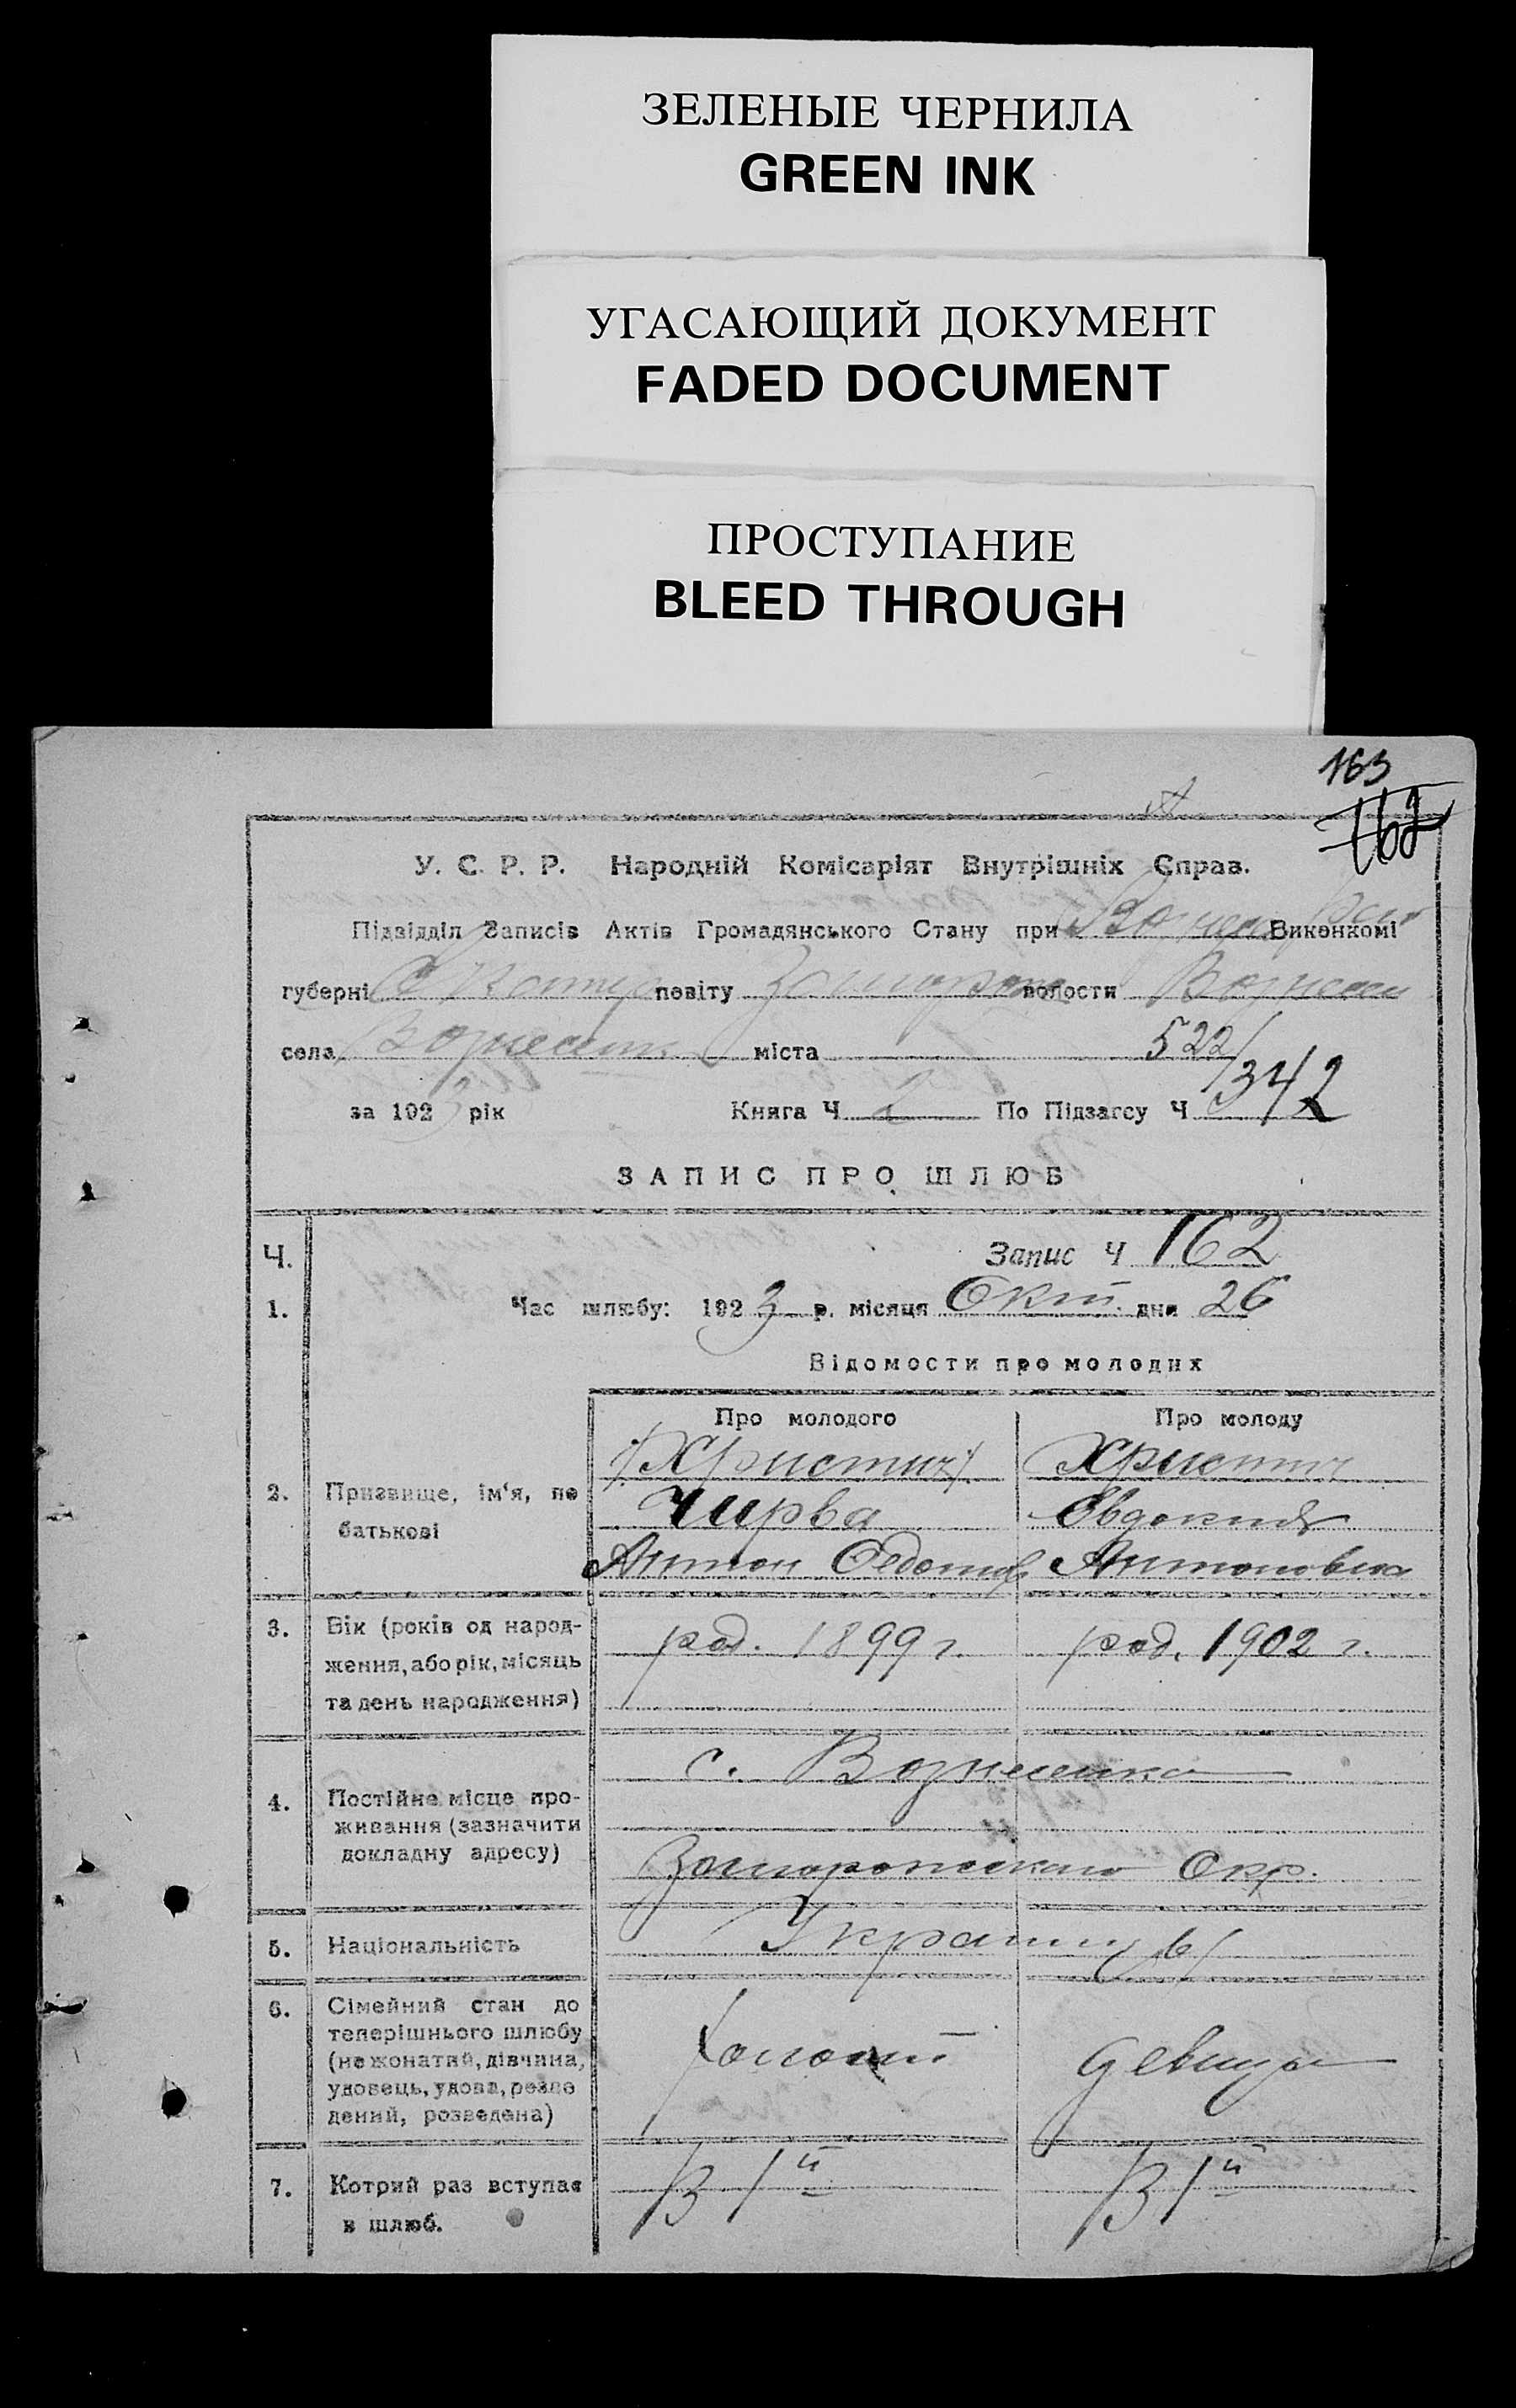 ЗЕЛЕНЫЕ ЧЕРНИЛА
GREEN INK
УГАСАЮЩИЙ ДОКУМЕНТ
FADED DOCUMENT
ПРОСТУПАНИЕ
BLEED THROUGH
163
162
У. С. Р. Р. Народній Комісаріят Внутрішніх Справ.
Підвідділ Записів Актів Громадянського Стану при Вознес. Виконкомі
губерні повіту волости Вознесен
села міста 522/
за 1923 рік Книга Ч 2 По Підзагсу Ч 342
ЗАПИС ПРО ШЛЮБ
Ч. Запис Ч 162
1. Час шлюбу: 1923 р. місяця Окт. дня 26
Відомости про молодих
Про молодого Про молоду
/Христич/ Христич
2. Призвище, ім'я, по Чирва Евдокия
батькові Антон Федотов Антоновна
3. Вік (років од народ- род. 1899 г. род. 1902 г.
ження, або рік, місяць
та день народження)
с. Вознесенка
4. Постійне місце про-
живання (зазначити
докладну адресу) Запорожского Окр.
5. Національність
6. Сімейний стан до
теперішнього шлюбу
(не жонатий, дівчина, холост девица
удовець, удова, розве
дений, розведена)
7. Котрий раз вступає В 1й В 1й
в шлюб.